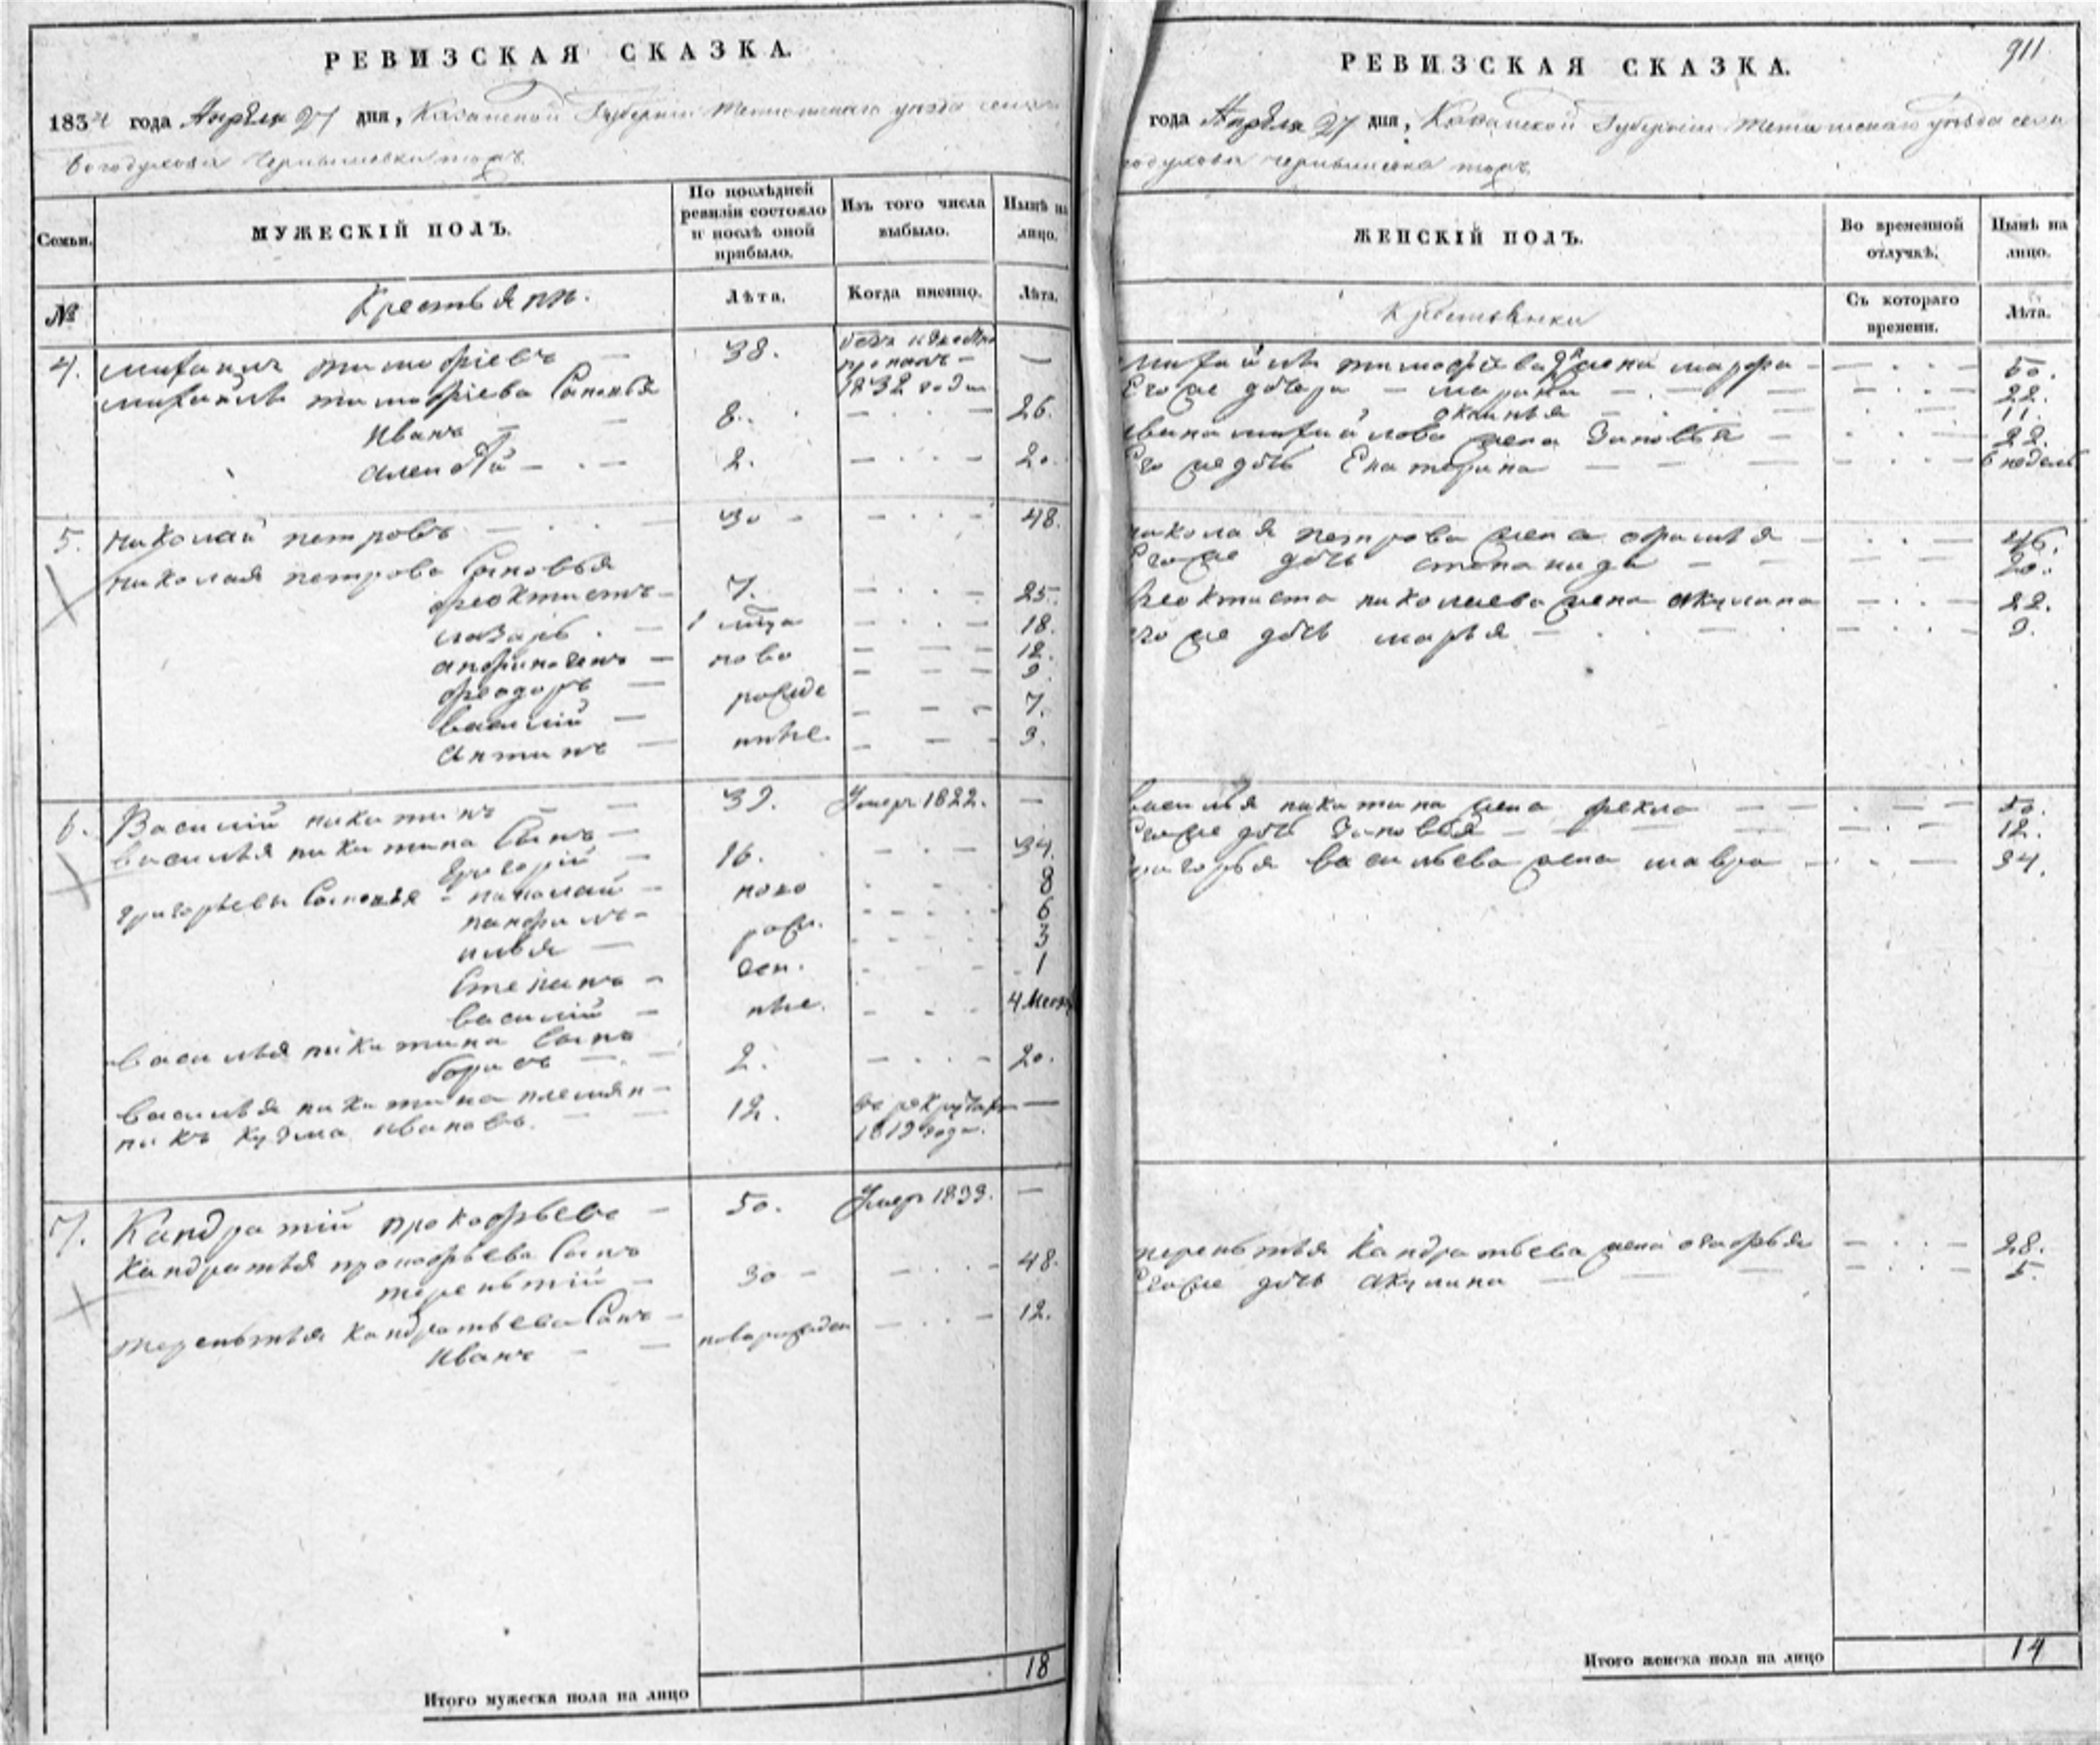 РЕВИЗСКАЯ СКАЗКА.
1834 года Апреля 27 дня, Казанской Губернии Тетюшскаго уезда села
Богодухова Чернышевка тожъ
Семьи.
МУЖЕСКІЙ ПОЛЪ.
По послѣдней ревизіи состояло и послѣ оной прибыло.
Изъ того числа выбыло.
Нынѣ на лицо.
№
Крестьяни.
Лѣта.
Когда именно.
Лѣта.
4. Михаилъ тимофіевъ — 38. безъ пропалъ 1832 года —
михайлы тимофіева Сыновья
Иванъ — 8. 26.
алексѣй — 2. 20.
5. Николай петровъ 30 48.
николая петрова Сыновья
феоктистъ 7. 25.
лазарь 1 18.
анфиногенъ ново 12.
феодоръ рожде 9
василій 7.
антипъ нные 3.
6. Василій никитинъ 39. Умеръ 1822. —
василья никитина Сынъ
григорій 16. 34.
григорьевы Сыновья николай ново 8
панфилъ 6
илья рож. 3
Степанъ ден. 1
василій ные. 4 Месяц
василья никитина Сынъ
борисъ 2. 20.
василья никитина племян
никъ кузма ивановъ 12. въ рекрутахъ 1819 года. —
7. Кандратій прокофьевъ 50. Умеръ 1833. —
Кандратья прокофьева Сынъ
терентій 30 48.
терентья Кандратьева Сынъ
Иванъ новорожден 12.
Итого мужеска пола на лицо 18
911
РЕВИЗСКАЯ СКАЗКА.
года Апреля 27 дня, Казанской Губерніи Тетюшскаго уезда села
годухова чернышевка тожъ
ЖЕНСКІЙ ПОЛЪ.
Во временной отлучкѣ.
Нынѣ на лицо.
Крестьянки
Съ котораго времени.
Лѣта.
Михайлы тимофіева жена марфа 50.
Его же дочери — марина 22.
акинья 11.
ивана михайлова жена Зиновья 22.
его же дочь Екатерина 6 недель
николая петрова жена 46.
Его же дочь степанида 20.
феоктиста николаева жена акулина 22.
его же дочь марья 3.
василья никитина жена фекла 50.
Его же дочь Зиновья 12.
григорья васильева жена мавра 34.
терентья Кандратьева жена агафья 28.
Его же дочь акулина 5.
Итого женска пола на лицо 14